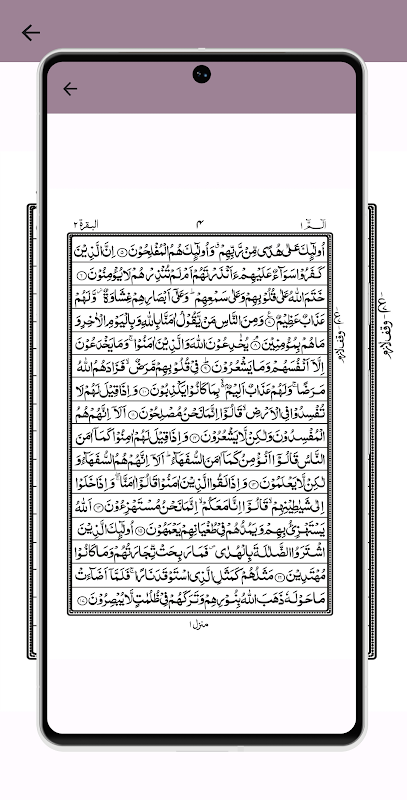 الٓمّٓ ١
٤
البقرة ٢
اُولٰٓئِكَ عَلٰى هُدًى مِّنْ رَّبِّهِمْ ۙ وَاُولٰٓئِكَ هُمُ الْمُفْلِحُوْنَ ⑤ اِنَّ الَّذِيْنَ
كَفَرُوْا سَوَآءٌ عَلَيْهِمْ ءَاَنْذَرْتَهُمْ اَمْ لَمْ تُنْذِرْهُمْ لَا يُؤْمِنُوْنَ ⑥
خَتَمَ اللّٰهُ عَلٰى قُلُوْبِهِمْ وَعَلٰى سَمْعِهِمْ ۭ وَعَلٰٓى اَبْصَارِهِمْ غِشَاوَةٌ ۡ وَّلَهُمْ
عَذَابٌ عَظِيْمٌ ⑦ وَمِنَ النَّاسِ مَنْ يَّقُوْلُ اٰمَنَّا بِاللّٰهِ وَبِالْيَوْمِ الْاٰخِرِ وَ
مَا هُمْ بِمُؤْمِنِيْنَ ⑧ يُخٰدِعُوْنَ اللّٰهَ وَالَّذِيْنَ اٰمَنُوْا ۚ وَمَا يَخْدَعُوْنَ
اِلَّآ اَنْفُسَهُمْ وَمَا يَشْعُرُوْنَ ⑨ فِيْ قُلُوْبِهِمْ مَّرَضٌ ۙ فَزَادَهُمُ اللّٰهُ
مَرَضًا ۚ وَلَهُمْ عَذَابٌ اَلِيْمٌۢ ۙ بِمَا كَانُوْا يَكْذِبُوْنَ ⑩ وَاِذَا قِيْلَ لَهُمْ لَا
تُفْسِدُوْا فِى الْاَرْضِ ۙ قَالُوْٓا اِنَّمَا نَحْنُ مُصْلِحُوْنَ ⑪ اَلَآ اِنَّهُمْ هُمُ
الْمُفْسِدُوْنَ وَلٰكِنْ لَّا يَشْعُرُوْنَ ⑫ وَاِذَا قِيْلَ لَهُمْ اٰمِنُوْا كَمَآ اٰمَنَ
النَّاسُ قَالُوْٓا اَنُؤْمِنُ كَمَآ اٰمَنَ السُّفَهَآءُ ۭ اَلَآ اِنَّهُمْ هُمُ السُّفَهَآءُ وَ
لٰكِنْ لَّا يَعْلَمُوْنَ ⑬ وَاِذَا لَقُوا الَّذِيْنَ اٰمَنُوْا قَالُوْٓا اٰمَنَّا ۚ وَاِذَا خَلَوْا
اِلٰى شَيٰطِيْنِهِمْ ۙ قَالُوْٓا اِنَّا مَعَكُمْ ۙ اِنَّمَا نَحْنُ مُسْتَهْزِءُوْنَ ⑭ اَللّٰهُ
يَسْتَهْزِئُ بِهِمْ وَيَمُدُّهُمْ فِيْ طُغْيَانِهِمْ يَعْمَهُوْنَ ⑮ اُولٰٓئِكَ الَّذِيْنَ
اشْتَرَوُا الضَّلٰلَةَ بِالْهُدٰى ۠ فَمَا رَبِحَتْ تِّجَارَتُهُمْ وَمَا كَانُوْا
مُهْتَدِيْنَ ⑯ مَثَلُهُمْ كَمَثَلِ الَّذِى اسْتَوْقَدَ نَارًا ۚ فَلَمَّآ اَضَآءَتْ
مَا حَوْلَهٗ ذَهَبَ اللّٰهُ بِنُوْرِهِمْ وَتَرَكَهُمْ فِيْ ظُلُمٰتٍ لَّا يُبْصِرُوْنَ ⑰
منزل ١
وقف لازم
وقف لازم